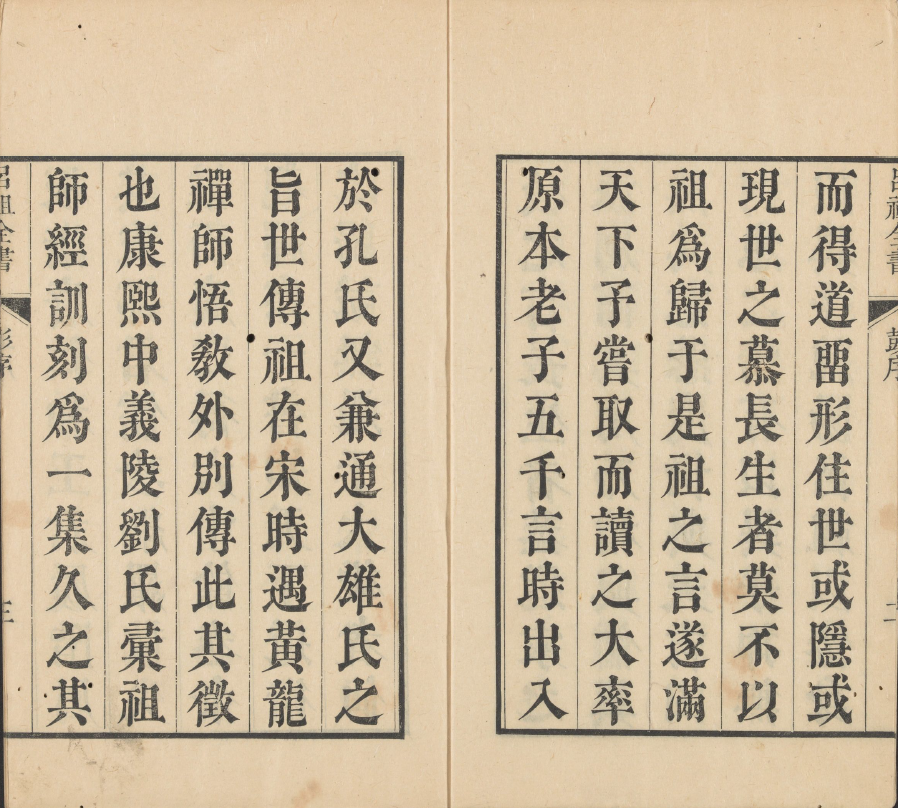 而得道畱形住世或隱或
現世之慕長生者莫不以
祖爲歸于是祖之言遂滿
天下予嘗取而讀之大率
原本老子五千言時出入
於孔氏又兼通大雄氏之
旨世傳祖在宋時遇黃龍
禪師悟敎外別傳此其徵
也康熙中義陵劉氏彙祖
師經訓刻爲一集久之其
呂祖全書
彭序
三